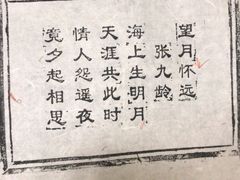 望月怀远
张九龄
海上生明月
天涯共此时
情人怨遥夜
竟夕起相思